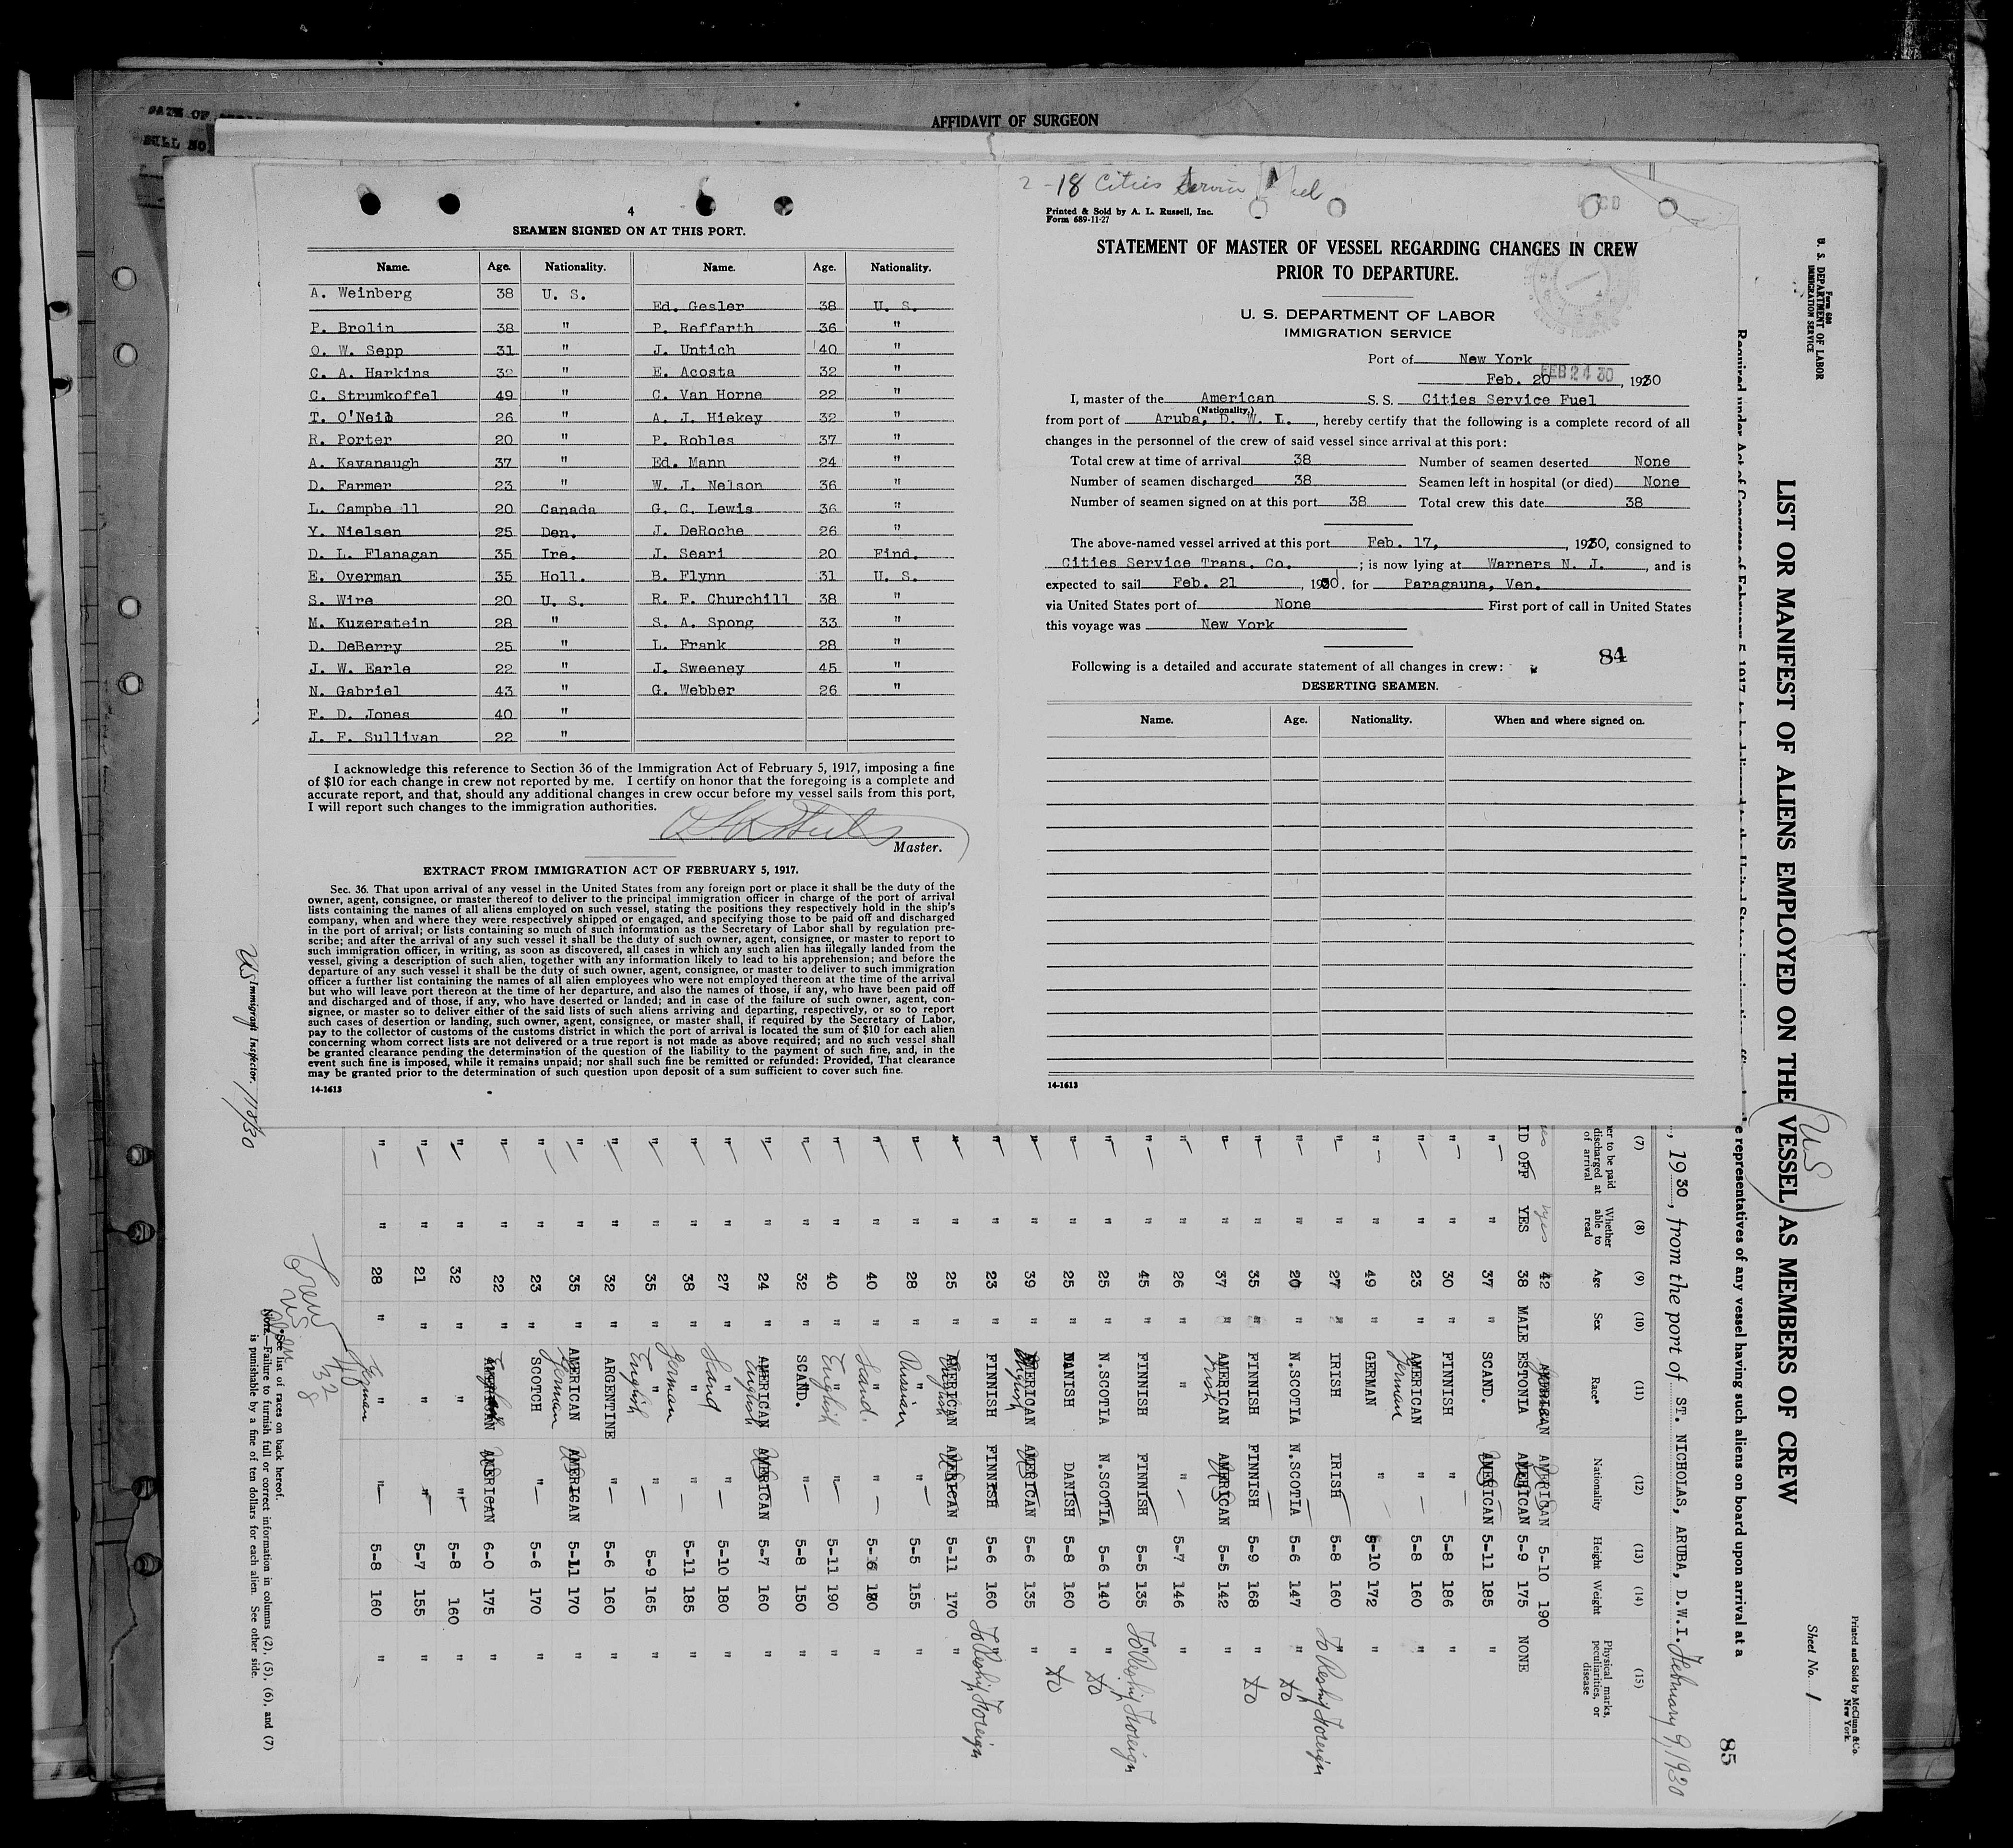 AFFIDAVIT OF SURGEON
4
SEAMEN SIGNED ON AT THIS PORT.
Name. Age. Nationality. Name. Age. Nationality.
A. Weinberg 38 U. S.
Ed. Gesler 38 U. S.
P. Brolin 38 " P. Reffarth 36 "
O. W. Sepp 31 " J. Untich 40 "
C. A. Harkins 32 " E. Acosta 32 "
C. Strumkoffel 49 " C. Van Horne 22 "
T. O'Neil 26 " A. J. Hickey 32 "
R. Porter 20 " P. Robles 37 "
A. Kavanaugh 37 " Ed. Mann 24 "
D. Farmer 23 " W. J. Nelson 36 "
L. Campbell 20 Canada G. C. Lewis 36 "
Y. Nielsen 25 Den. J. DeRoche 26 "
D. L. Flanagan 35 Ire. J. Seari 20 Find.
E. Overman 35 Holl. B. Flynn 31 U. S.
S. Wire 20 U. S. R. F. Churchill 38 "
M. Kuzerstein 28 " S. A. Spong 33 "
D. DeBerry 25 " L. Frank 28 "
J. W. Earle 22 " J. Sweeney 45 "
N. Gabriel 43 " G. Webber 26 "
F. D. Jones 40 "
J. F. Sullivan 22 "
I acknowledge this reference to Section 36 of the Immigration Act of February 5, 1917, imposing a fine
of $10 for each change in crew not reported by me. I certify on honor that the foregoing is a complete and
accurate report, and that, should any additional changes in crew occur before my vessel sails from this port,
I will report such changes to the immigration authorities.
Master.
EXTRACT FROM IMMIGRATION ACT OF FEBRUARY 5, 1917.
Sec. 36. That upon arrival of any vessel in the United States from any foreign port or place it shall be the duty of the
owner, agent, consignee, or master thereof to deliver to the principal immigration officer in charge of the port of arrival
lists containing the names of all aliens employed on such vessel, stating the positions they respectively hold in the ship's
company, when and where they were respectively shipped or engaged, and specifying those to be paid off and discharged
in the port of arrival; or lists containing so much of such information as the Secretary of Labor shall by regulation pre-
scribe; and after the arrival of any such vessel it shall be the duty of such owner, agent, consignee, or master to report to
such immigration officer, in writing, as soon as discovered, all cases in which any such alien has illegally landed from the
vessel, giving a description of such alien, together with any information likely to lead to his apprehension; and before the
departure of any such vessel it shall be the duty of such owner, agent, consignee, or master to deliver to such immigration
officer a further list containing the names of all alien employees who were not employed thereon at the time of the arrival
but who will leave port thereon at the time of her departure, and also the names of those, if any, who have been paid off
and discharged and of those, if any, who have deserted or landed; and in case of the failure of such owner, agent, con-
signee, or master so to deliver either of the said lists of such aliens arriving and departing, respectively, or so to report
such cases of desertion or landing, such owner, agent, consignee, or master shall, if required by the Secretary of Labor,
pay to the collector of customs of the customs district in which the port of arrival is located the sum of $10 for each alien
concerning whom correct lists are not delivered or a true report is not made as above required; and no such vessel shall
be granted clearance pending the determination of the question of the liability to the payment of such fine, and, in the
event such fine is imposed, while it remains unpaid; nor shall such fine be remitted or refunded: Provided, That clearance
may be granted prior to the determination of such question upon deposit of a sum sufficient to cover such fine.
14-1613
2-18 Cities Service Fuel
Printed & Sold by A. L. Russell, Inc.
Form 689-11-27
STATEMENT OF MASTER OF VESSEL REGARDING CHANGES IN CREW
PRIOR TO DEPARTURE.
U. S. DEPARTMENT OF LABOR
IMMIGRATION SERVICE
Port of New York
Feb. 20 FEB 24 30, 1930
I, master of the American S. S. Cities Service Fuel
(Nationality.)
from port of Aruba, D. W. I., hereby certify that the following is a complete record of all
changes in the personnel of the crew of said vessel since arrival at this port:
Total crew at time of arrival 38 Number of seamen deserted None
Number of seamen discharged 38 Seamen left in hospital (or died) None
Number of seamen signed on at this port 38 Total crew this date 38
The above-named vessel arrived at this port Feb. 17, 1930, consigned to
Cities Service Trans. Co.; is now lying at Warners N. J., and is
expected to sail Feb. 21, 1930, for Paragauna, Ven.
via United States port of None First port of call in United States
this voyage was New York
84
Following is a detailed and accurate statement of all changes in crew:
DESERTING SEAMEN.
Name. Age. Nationality. When and where signed on.
14-1613
Form 680
U. S. DEPARTMENT OF LABOR
IMMIGRATION SERVICE
Printed and Sold by McClunn & Co.
New York.
Sheet No. 1
LIST OR MANIFEST OF ALIENS EMPLOYED ON THE VESSEL AS MEMBERS OF CREW
(US)
representatives of any vessel having such aliens on board upon arrival at a
85
, 1930, from the port of ST. NICHOLAS, ARUBA, D.W.I. February 9, 1930
(7) (8) (9) (10) (11) (12) (13) (14) (15)
er to be paid discharged at of arrival Whether able to read Age Sex Race* Nationality Height Weight Physical marks, peculiarities, or disease
yes 42 AMERICAN AMERICAN 5-10 190
ID OFF YES 38 MALE ESTONIA AMERICAN 5-9 175 NONE
" " 37 " SCAND. AMERICAN 5-11 185 "
" " 30 " FINNISH " 5-8 186 "
" " 23 " AMERICAN German " 5-8 160 "
" " 49 " GERMAN " 5-10 172 "
" " 27 " IRISH IRISH 5-8 160 " To Reship Foreign
" " 20 " N.SCOTIA N.SCOTIA 5-6 147 " do
" " 35 " FINNISH FINNISH 5-9 168 " do
" " 37 " AMERICAN Irish AMERICAN US 5-5 142 "
" " 26 " " " 5-7 146 "
" " 45 " FINNISH FINNISH 5-5 135 " To Reship Foreign
" " 25 " N.SCOTIA N.SCOTIA 5-6 140 " do
" " 25 " DANISH DANISH 5-8 160 " do
" " 39 " AMERICAN English AMERICAN US 5-6 135 "
" " 23 " FINNISH FINNISH 5-6 160 " To Reship Foreign
" " 25 " AMERICAN English AMERICAN US 5-11 170 "
" " 28 " Russian " 5-5 155 "
" " 40 " " Scand. " 5-6 180 "
" " 40 " " English " 5-11 190 "
" " 32 " SCAND. " 5-8 150 "
" " 24 " AMERICAN English AMERICAN US 5-7 160 "
" " 27 " " Scand " 5-10 180 "
" " 38 " " German " 5-11 185 "
" " 35 " " English " 5-9 165 "
" " 32 " ARGENTINE " 5-6 160 "
" " 35 " AMERICAN German AMERICAN US 5-11 170 "
" " 23 " SCOTCH " 5-6 170 "
" " 22 " AMERICAN English AMERICAN US 6-0 175 "
" " 32 " " " 5-8 160 "
" " 21 " " " 5-7 155 "
" " 28 " " German " 5-8 160 "
Crew
US 32
8
*See list of races on back hereof.
NOTE.—Failure to furnish full or correct information in columns (2), (5), (6), and (7)
is punishable by a fine of ten dollars for each alien. See other side.
US Immigrant Inspector.